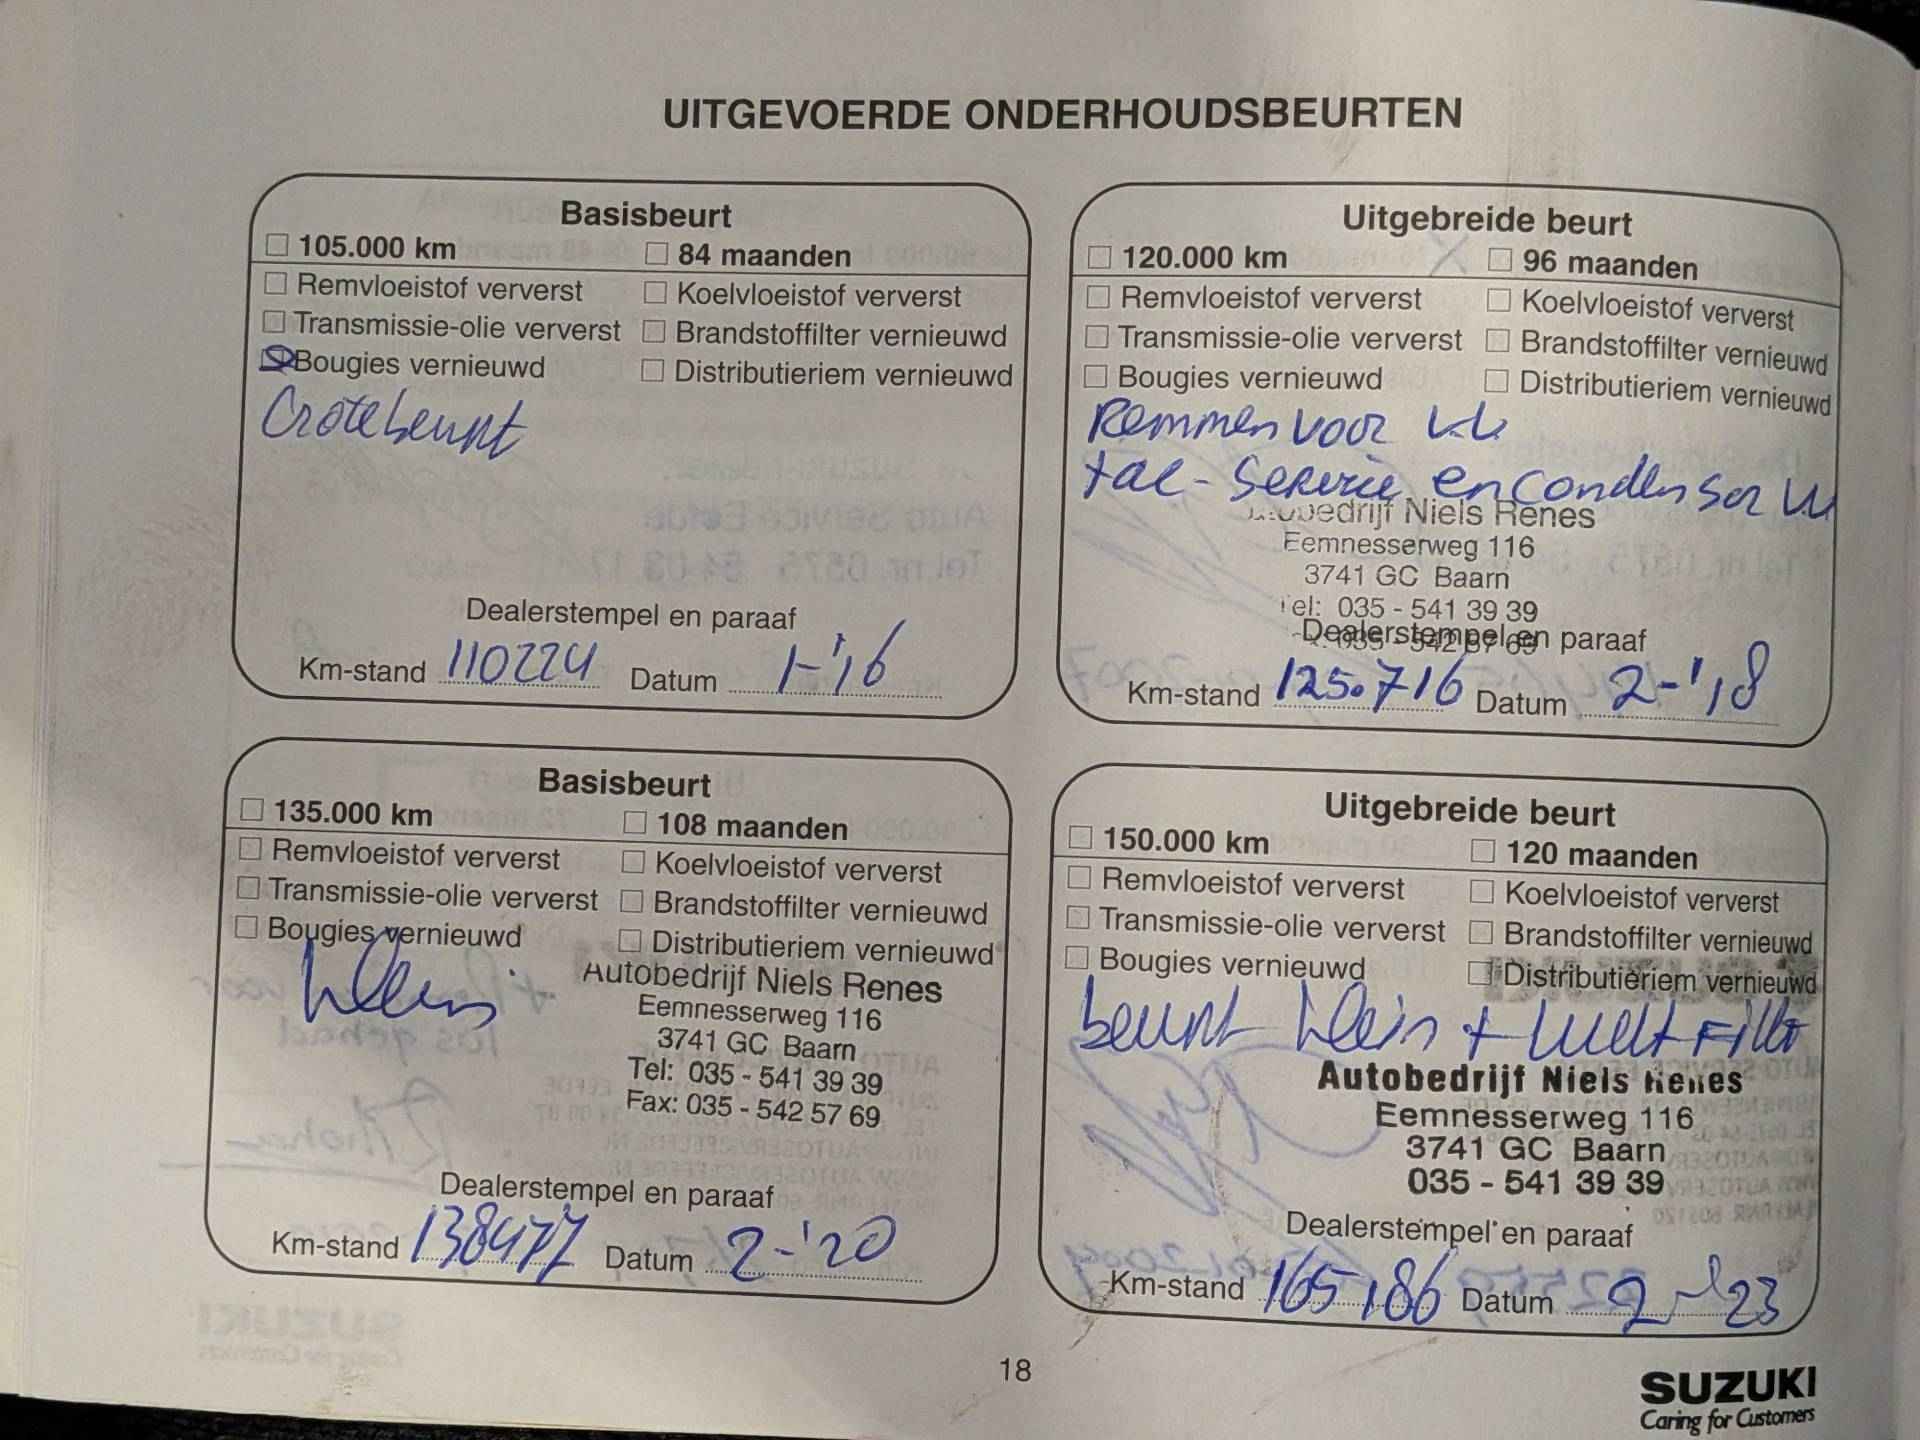 UITGEVOERDE ONDERHOUDSBEURTEN
Basisbeurt
105.000 km 84 maanden
Remvloeistof ververst Koelvloeistof ververst
Transmissie-olie ververst Brandstoffilter vernieuwd
Bougies vernieuwd Distributieriem vernieuwd
Grote beurt
Dealerstempel en paraaf
Km-stand 110224 Datum 1-'16
Uitgebreide beurt
120.000 km 96 maanden
Remvloeistof ververst Koelvloeistof ververst
Transmissie-olie ververst Brandstoffilter vernieuwd
Bougies vernieuwd Distributieriem vernieuwd
Remmen voor V.V.
+ac-service en condensor VV
Autobedrijf Niels Renes
Eemnesserweg 116
3741 GC Baarn
Tel: 035 - 541 39 39
Dealerstempel en paraaf
Km-stand 125.716 Datum 2-'18
Basisbeurt
135.000 km 108 maanden
Remvloeistof ververst Koelvloeistof ververst
Transmissie-olie ververst Brandstoffilter vernieuwd
Bougies vernieuwd Distributieriem vernieuwd
klein
Autobedrijf Niels Renes
Eemnesserweg 116
3741 GC Baarn
Tel: 035 - 541 39 39
Fax: 035 - 542 57 69
Dealerstempel en paraaf
Km-stand 138477 Datum 2-'20
Uitgebreide beurt
150.000 km 120 maanden
Remvloeistof ververst Koelvloeistof ververst
Transmissie-olie ververst Brandstoffilter vernieuwd
Bougies vernieuwd Distributieriem vernieuwd
beurt klein + lucht Filter
Autobedrijf Niels Renes
Eemnesserweg 116
3741 GC Baarn
035 - 541 39 39
Dealerstempel en paraaf
Km-stand 165186 Datum 2-'23
18
SUZUKI
Caring for Customers